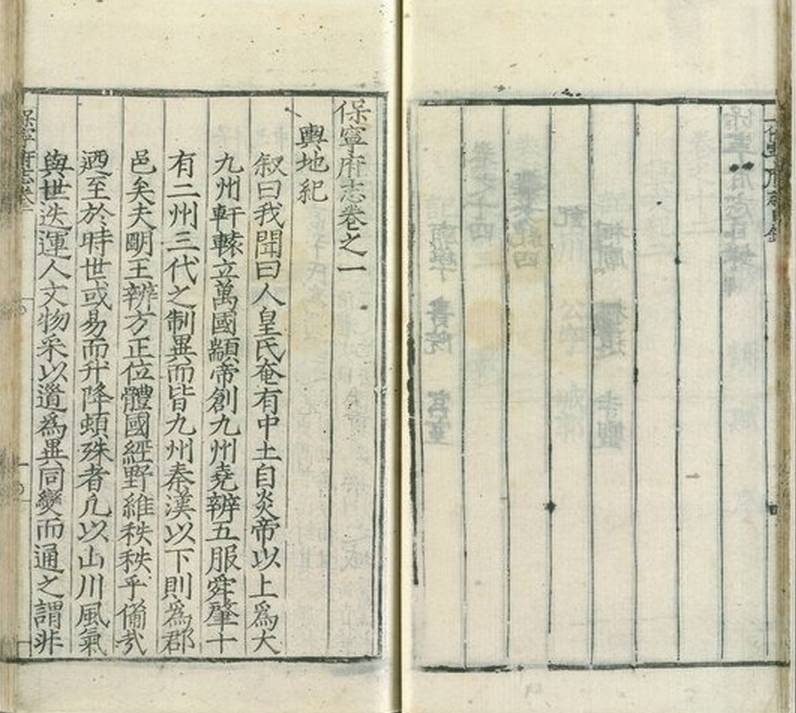 保寧府志目錄
保寧府志卷之一
輿地紀
叙曰我聞曰人皇氏奄有中土自炎帝以上爲大
九州軒轅立萬國顓帝創九州堯辨五服舜肇十
有二州三代之制異而皆九州秦漢以下則爲郡
邑矣夫明王辨方正位體國經野維秩秩乎備哉
廼至於時世或易而升降頓殊者凢以山川風氣
與世迭運人文物采以遞爲異同變而通之謂非
保寧府志卷一